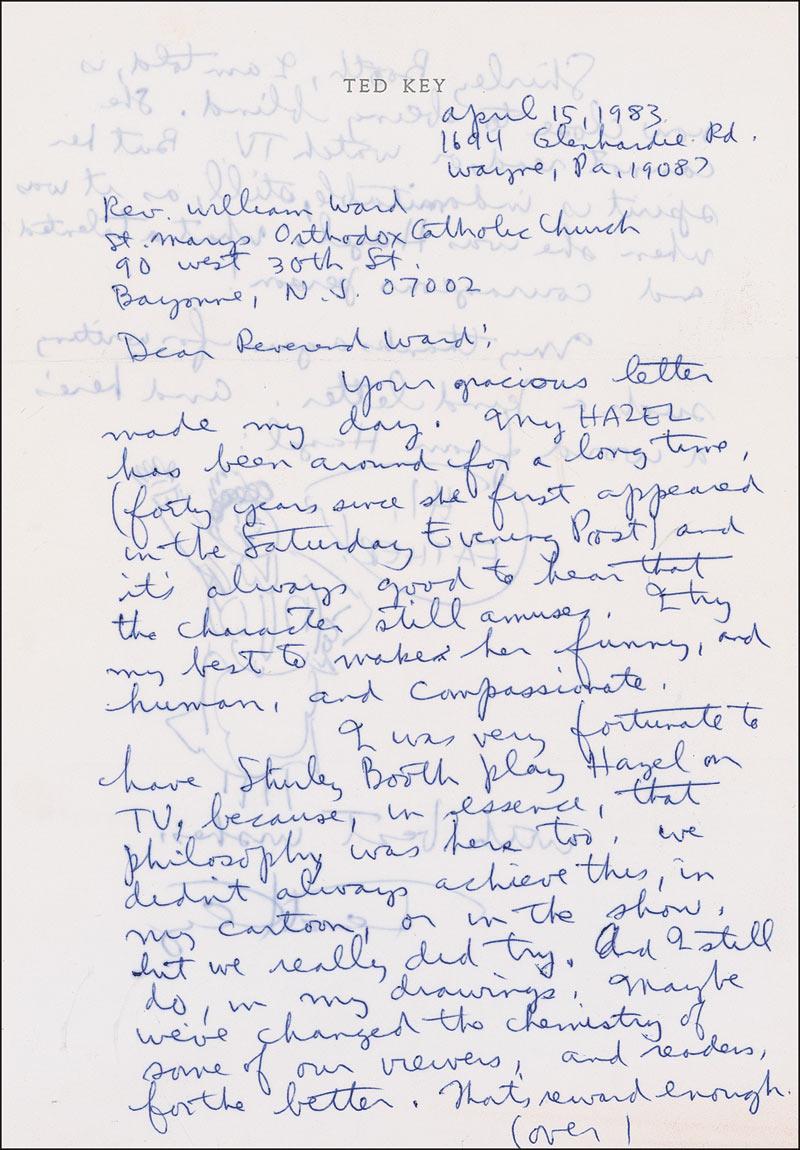 TED KEY
April 15, 1983
1694 Glenhardie Rd.
Wayne, Pa. 19087
Rev. William Ward
St. Marys Orthodox Catholic Church
90 West 30th St.
Bayonne, N.J. 07002
Dear Reverend Ward:
Your gracious letter
made my day. My HAZEL
has been around for a long time,
(forty years since she first appeared
in the Saturday Evening Post) and
it's always good to hear that
the character still amuses. I try
my best to make her funny, and
human, and compassionate.
I was very fortunate to
have Shirley Booth play Hazel on
TV, because, in essence, that
philosophy was hers too. We
didn't always achieve this, in
my cartoon, or in the show,
but we really did try. And I still
do, in my drawings. Maybe
we've changed the chemistry of
some of our viewers, and readers,
for the better. That's reward enough.
(over)